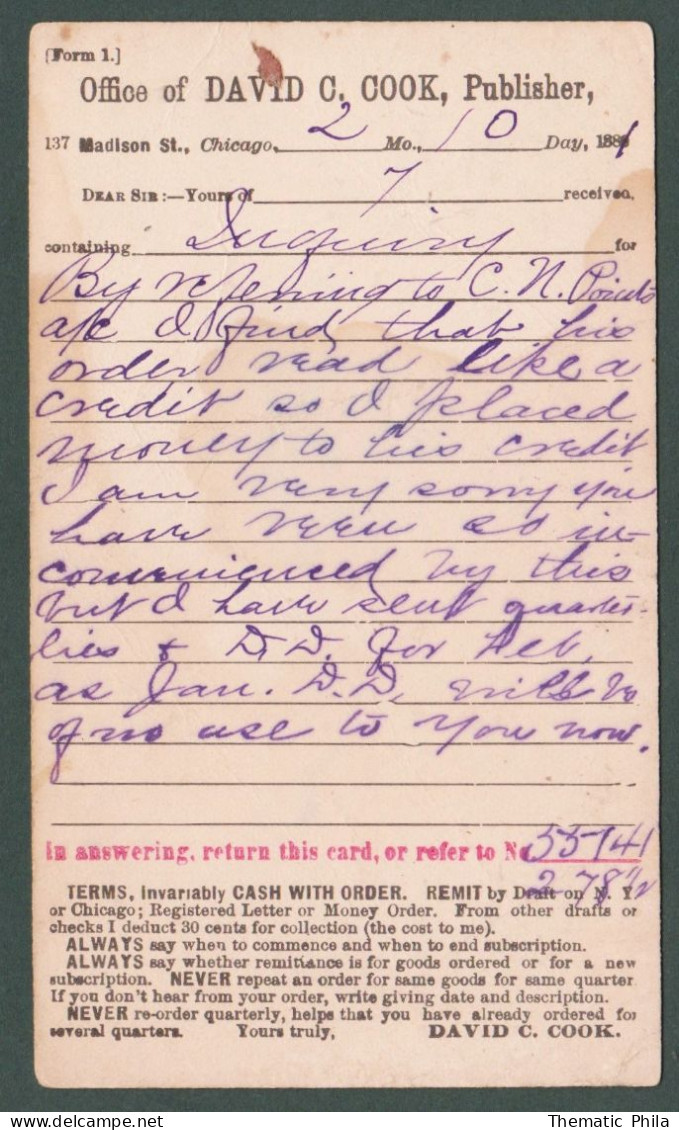 [Form 1.]
Office of DAVID C. COOK, Publisher,
137 Madison St., Chicago, 2 Mo., 10 Day, 1881
DEAR SIR:—Yours of 7 received,
containing Inquiry for
By refering to C. N.
a/c I find that his
order read like a
credit so I placed
money to his credit
I am very sorry you
have been so in-
convenienced by this
but I have sent quarter-
lies & D.D. for Feb.
as Jan. D.D. will be
of no use to you now.
In answering, return this card, or refer to No. 55141
278
TERMS, Invariably CASH WITH ORDER. REMIT by Draft on N. Y.
or Chicago; Registered Letter or Money Order. From other drafts or
checks I deduct 30 cents for collection (the cost to me).
ALWAYS say when to commence and when to end subscription.
ALWAYS say whether remittance is for goods ordered or for a new
subscription. NEVER repeat an order for same goods for same quarter
If you don't hear from your order, write giving date and description.
NEVER re-order quarterly, helps that you have already ordered for
several quarters. Yours truly, DAVID C. COOK.
delcampe.net
Thematic Phila